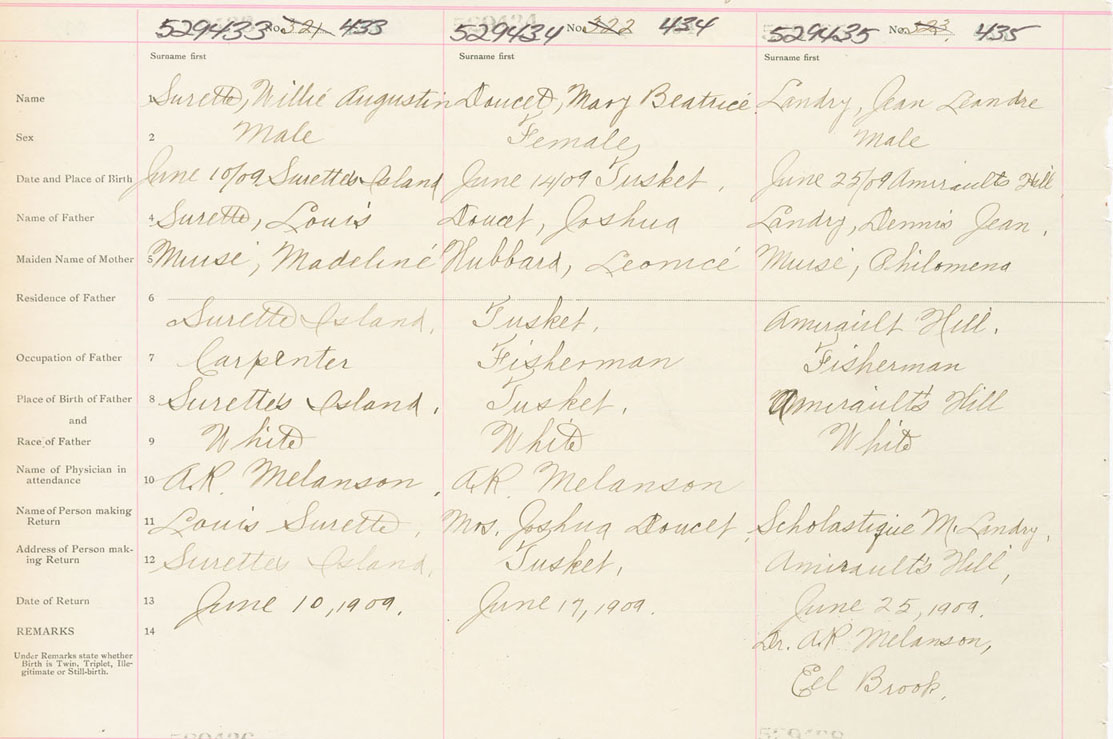 529433 No. 321 433 529434 No. 322 434 529435 No. 323 435
Surname first Surname first Surname first
Name 1 Surette, Willie Augustin Doucet, Mary Beatrice Landry, Jean Leandre
Sex 2 Male Female, Male
Date and Place of Birth June 10/09 Surette's Island June 14/09 Tusket, June 25/09 Amirault's Hill
Name of Father 4 Surette, Louis Doucet, Joshua Landry, Dennis Jean,
Maiden Name of Mother 5 Muise, Madeline Hubbard, Leonice Muise, Philomena
Residence of Father 6
Surette Island, Tusket, Amirault Hill,
Occupation of Father 7 Carpenter Fisherman Fisherman
Place of Birth of Father 8 Surette's Island, Tusket, Amirault's Hill
and
Race of Father 9 White White White
Name of Physician in
attendance 10 A.R. Melanson, A.R. Melanson
Name of Person making
Return 11 Louis Surette, Mrs. Joshua Doucet, Scholastique M. Landry,
Address of Person mak-
ing Return 12 Surette's Island, Tusket, Amirault's Hill,
Date of Return 13 June 10, 1909. June 17, 1909. June 25, 1909.
REMARKS 14 Dr. A.R. Melanson,
Under Remarks state whether
Birth is Twin, Triplet, Ille-
gitimate or Still-birth.
Eel Brook,